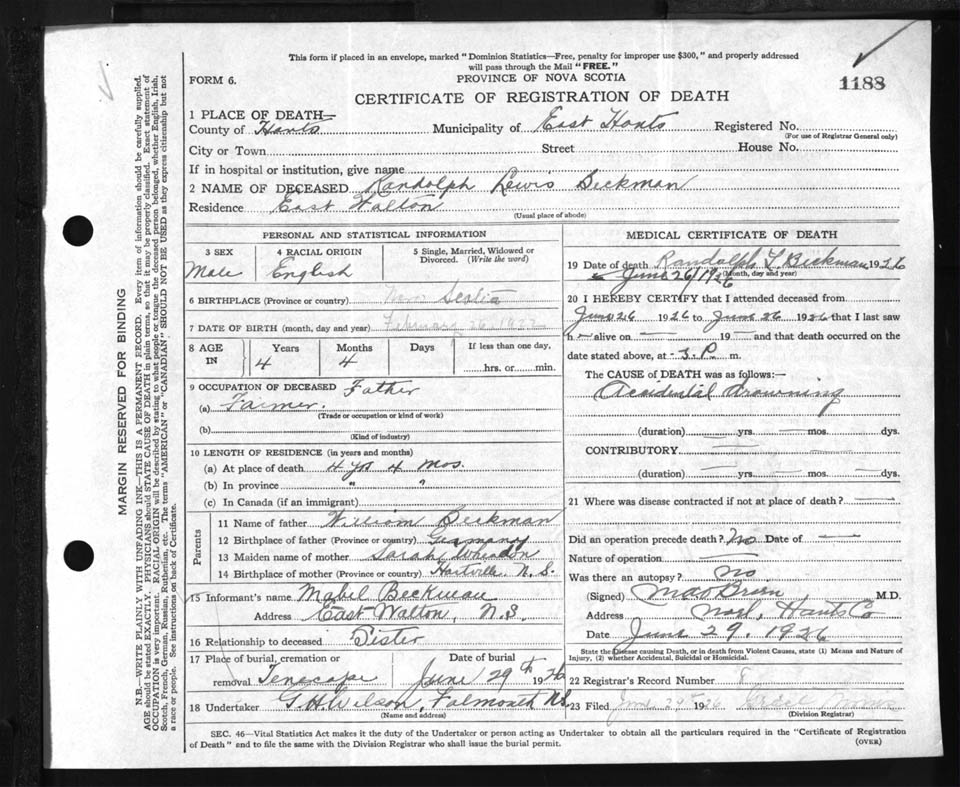 This form if placed in an envelope, marked "Dominion Statistics—Free, penalty for improper use $300," and properly addressed
will pass through the Mail "FREE."
FORM 6.
PROVINCE OF NOVA SCOTIA
1188
CERTIFICATE OF REGISTRATION OF DEATH
1 PLACE OF DEATH—
County of Hants Municipality of East Hants Registered No.
(For use of Registrar General only)
City or Town Street House No.
If in hospital or institution, give name
2 NAME OF DECEASED Randolph Lewis Beckman
Residence East Walton
(Usual place of abode)
PERSONAL AND STATISTICAL INFORMATION
3 SEX 4 RACIAL ORIGIN 5 Single, Married, Widowed or
Divorced. (Write the word)
Male English
6 BIRTHPLACE (Province or country) Nova Scotia
7 DATE OF BIRTH (month, day and year) February 26 1922
8 AGE IN Years Months Days If less than one day,
4 4 hrs. or min.
9 OCCUPATION OF DECEASED Father
(a) Farmer.
(Trade or occupation or kind of work)
(b)
(Kind of industry)
10 LENGTH OF RESIDENCE (in years and months)
(a) At place of death 4 yrs 4 mos.
(b) In province " "
(c) In Canada (if an immigrant)
Parents
11 Name of father William Beckman
12 Birthplace of father (Province or country) Germany
13 Maiden name of mother Sarah Wheadon
14 Birthplace of mother (Province or country) Hartville N.S.
15 Informant's name Mabel Beckman
Address East Walton, N.S.
16 Relationship to deceased Sister
17 Place of burial, cremation or Date of burial
removal Tenecape June 29th 1926
18 Undertaker G H Wilson, Falmouth N.S.
(Name and address)
MEDICAL CERTIFICATE OF DEATH
19 Date of death Randolph L. Beckman 1926
June 26/1926
(Month, day and year)
20 I HEREBY CERTIFY that I attended deceased from
June 26 1926 to June 26 1926 that I last saw
h— alive on — 19— and that death occurred on the
date stated above, at 3 P. m.
The CAUSE OF DEATH was as follows:
Accidental drowning
(duration) yrs. mos. dys.
CONTRIBUTORY
(duration) yrs. mos. dys.
21 Where was disease contracted if not at place of death?
Did an operation precede death? No Date of —
Nature of operation —
Was there an autopsy? no
(Signed) M.D.
Address Noel, Hants Co
Date June 29. 1926
State the Disease causing Death, or in death from Violent Causes, state (1) Means and Nature of
Injury, (2) whether Accidental, Suicidal or Homicidal.
22 Registrar's Record Number
23 Filed June 29 1926
(Division Registrar)
SEC. 46—Vital Statistics Act makes it the duty of the Undertaker or person acting as Undertaker to obtain all the particulars required in the "Certificate of Registration
of Death" and to file the same with the Division Registrar who shall issue the burial permit.
(OVER)
MARGIN RESERVED FOR BINDING
N.B.—WRITE PLAINLY WITH UNFADING INK—THIS IS A PERMANENT RECORD. Every item of information should be carefully supplied.
AGE should be stated EXACTLY. PHYSICIANS should STATE CAUSE OF DEATH in plain terms, so that it may be properly classified. Exact statement of
OCCUPATION is very important. RACIAL ORIGIN will be described by stating to what people or tongue the deceased person belonged, whether English, Irish,
Scotch, French, German, Russian, Ruthenian, etc. The terms "AMERICAN" or "CANADIAN" SHOULD NOT BE USED as they express citizenship but not
a race or people. See instructions on back of Certificate.